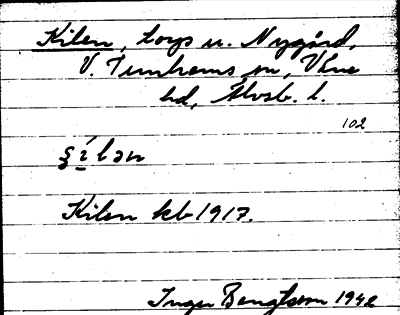 Kilen, torp u. Nygård,
V. Tunhems sn, Väne
hd, Älvsb. l.
102
ʂí̠lən
Kilen kb 1917.
Inger Bengtsson 1942